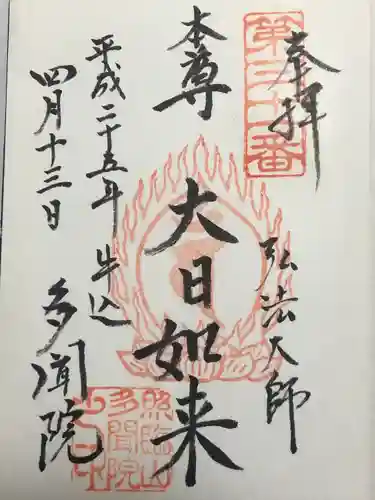 奉拝
第三十一番
弘法大師
本尊
大日如来
平成二十五年 牛込
四月十三日 多聞院
照臨山
多聞院